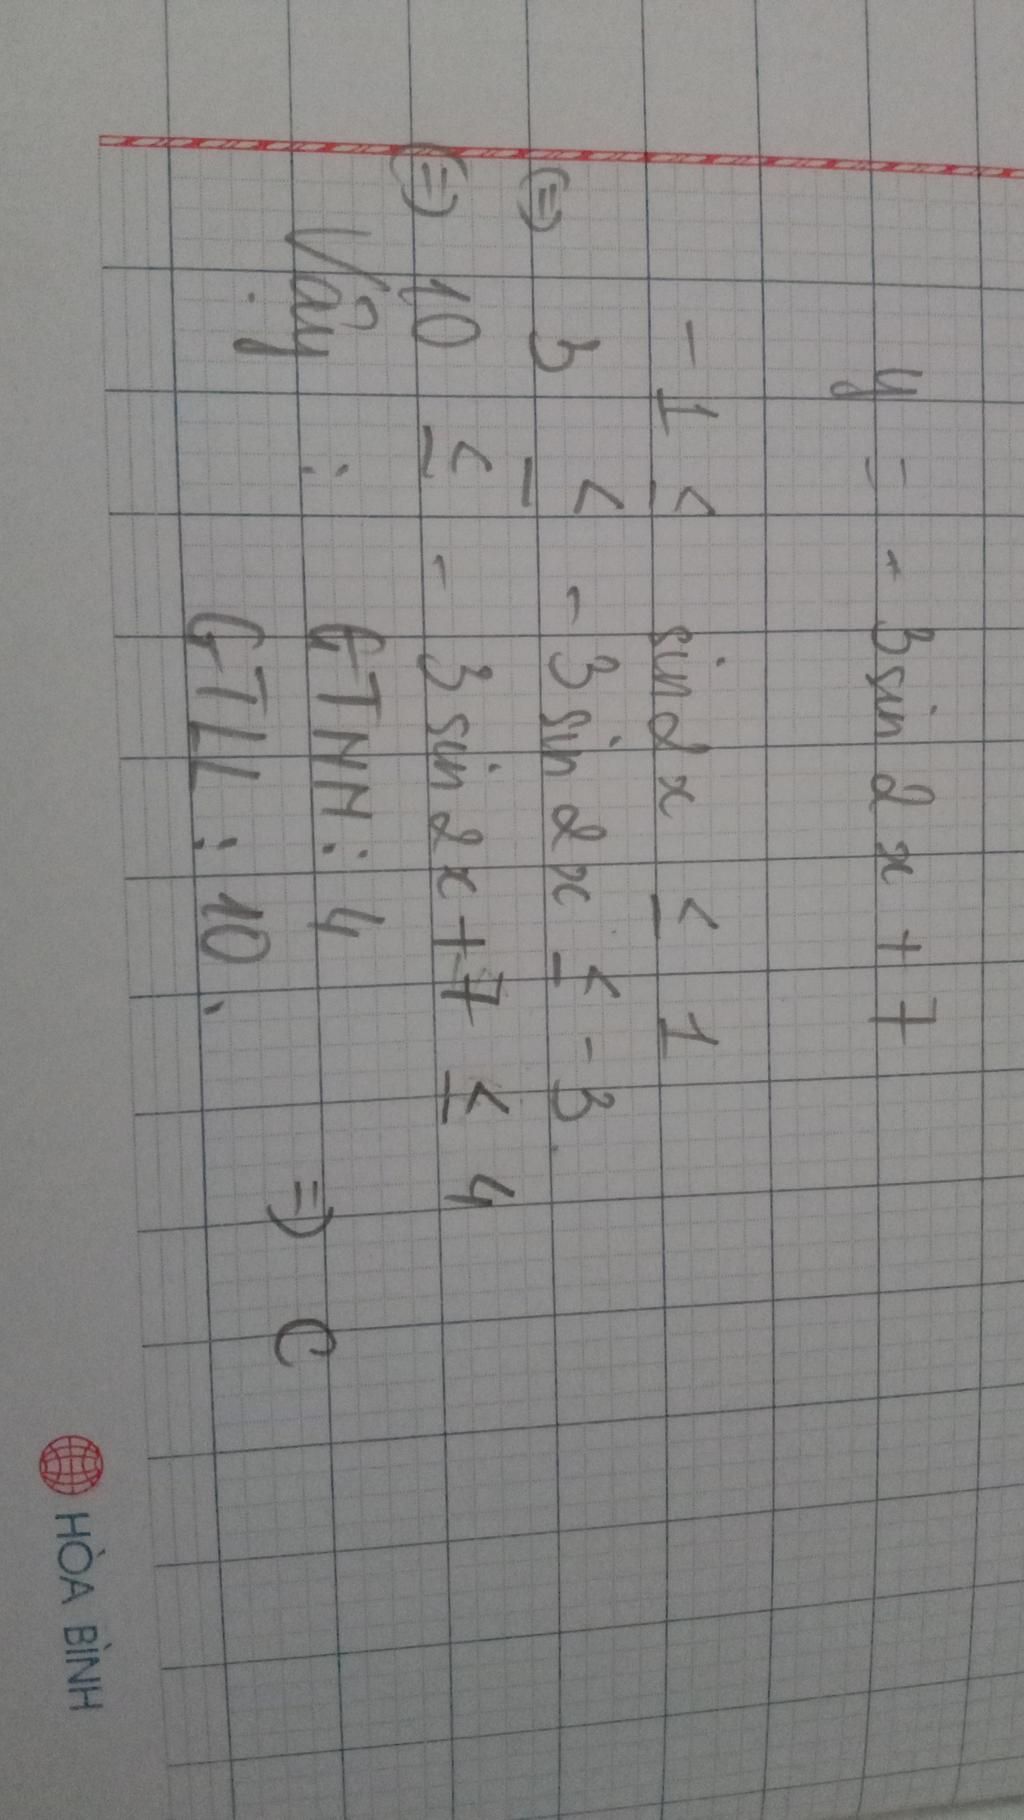 y = - 3sin2x + 7
- 1 ≤ sin2x ≤ 1
(=) 3 ≤ - 3sin2x ≤ - 3.
(=) 10 ≤ - 3sin2x + 7 ≤ 4
Vậy : GTNN : 4
GTLL : 10.
=) C
HÒA BÌNH